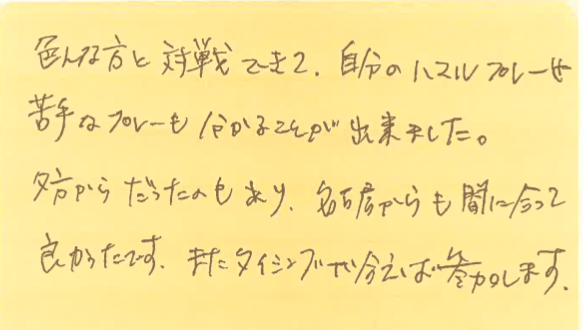 色んな方と対戦できて、自分のハマルプレーや
苦手なプレーも分かることが出来ました。
夕方からだったのもあり、名古屋からも間に合って
良かったです。またタイミングが合えば参加します。